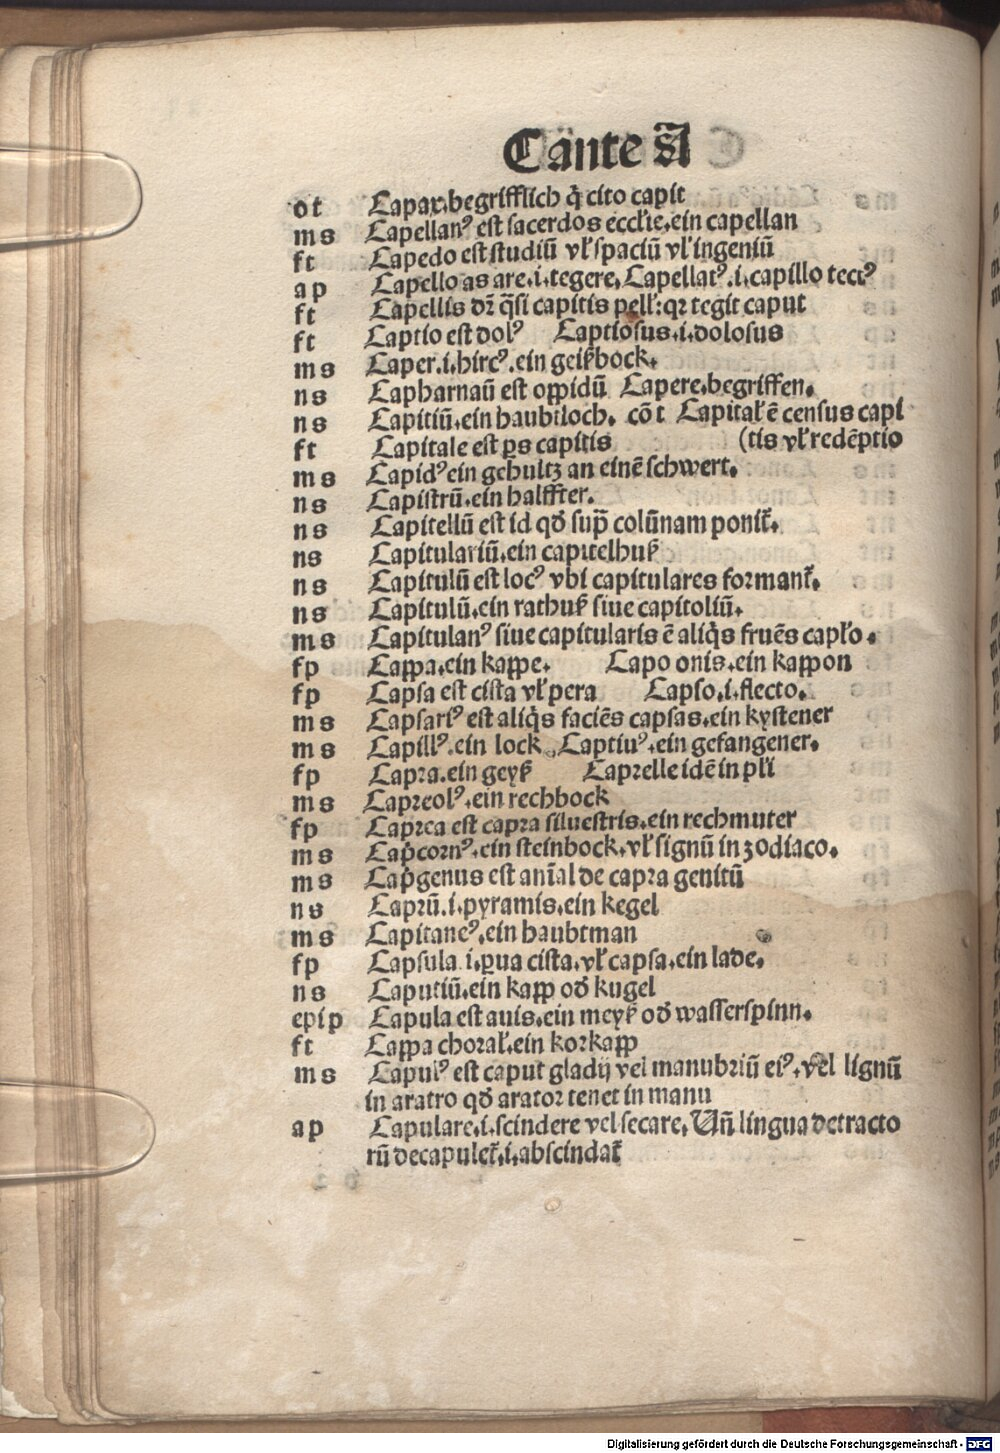 C ante A
ot Capax.begrifflich q̄ cito capit
ms Capellanꝰ est sacerdos eccl'ie.ein capellan
ft Capedo est studiū vl' spaciū vl' ingeniū
ap Capello as are.i.tegere. Capellatꝰ.i.capillo tectꝰ
ft Capellis dr̄ q̄si capitis pell':qꝛ tegit caput
ft Captio est dolꝰ Captiosus.i.dolosus
ms Caper.i.hircꝰ.ein geißbock.
ns Capharnaū est oppidū Capere.begriffen.
ns Capitiū.ein haubtloch. cō t Capital' ē census capi
ft Capitale est ꝑs capitis (tis vl' redēptio
ms Capidꝰ ein gehultz an einē schwert.
ns Capistrū.ein halffter.
ns Capitellū est id qđ sup̄ colūnam ponit̄.
ns Capitulariū.ein capitelhuß
ns Capitulū est locꝰ vbi capitulares formant̄.
ns Capitulū.ein rathuß siue capitoliū.
ms Capitulanꝰ siue capitularis ē aliq̄s fruēs capl'o.
fp Cappa.ein kappe. Capo onis.ein kappon
fp Capsa est cista vl' pera Capso.i.flecto.
ms Capsariꝰ est aliq̄s faciēs capsas.ein kystener
ms Capillꝰ.ein lock. Captiuꝰ.ein gefangener.
fp Capra.ein geyß Caprelle idē in pl'i
ms Capreolꝰ.ein rechbock
fp Caprea est capra siluestris.ein rechmuter
ms Cap̄cornꝰ.ein steinbock.vl' signū in zodiaco.
ms Cap̄genus est anīal de capra genitū
ns Caprū.i.pyramis.ein kegel
ms Capitaneꝰ.ein haubtman
fp Capsula.i.ꝑua cista.vl' capsa.ein lade.
ns Caputiū.ein kapp ođ kugel
epip Capula est auis.ein meyß ođ wasserspinn.
ft Cappa choral'.ein korkapp
ms Capulꝰ est caput gladij vel manubriū eiꝰ.vel lignū
in aratro qđ arator tenet in manu
ap Capulare.i.scindere vel secare. Vn̄ lingua detracto
rū decapulet̄.i.abscindat̄
Digitalisierung gefördert durch die Deutsche Forschungsgemeinschaft - DFG